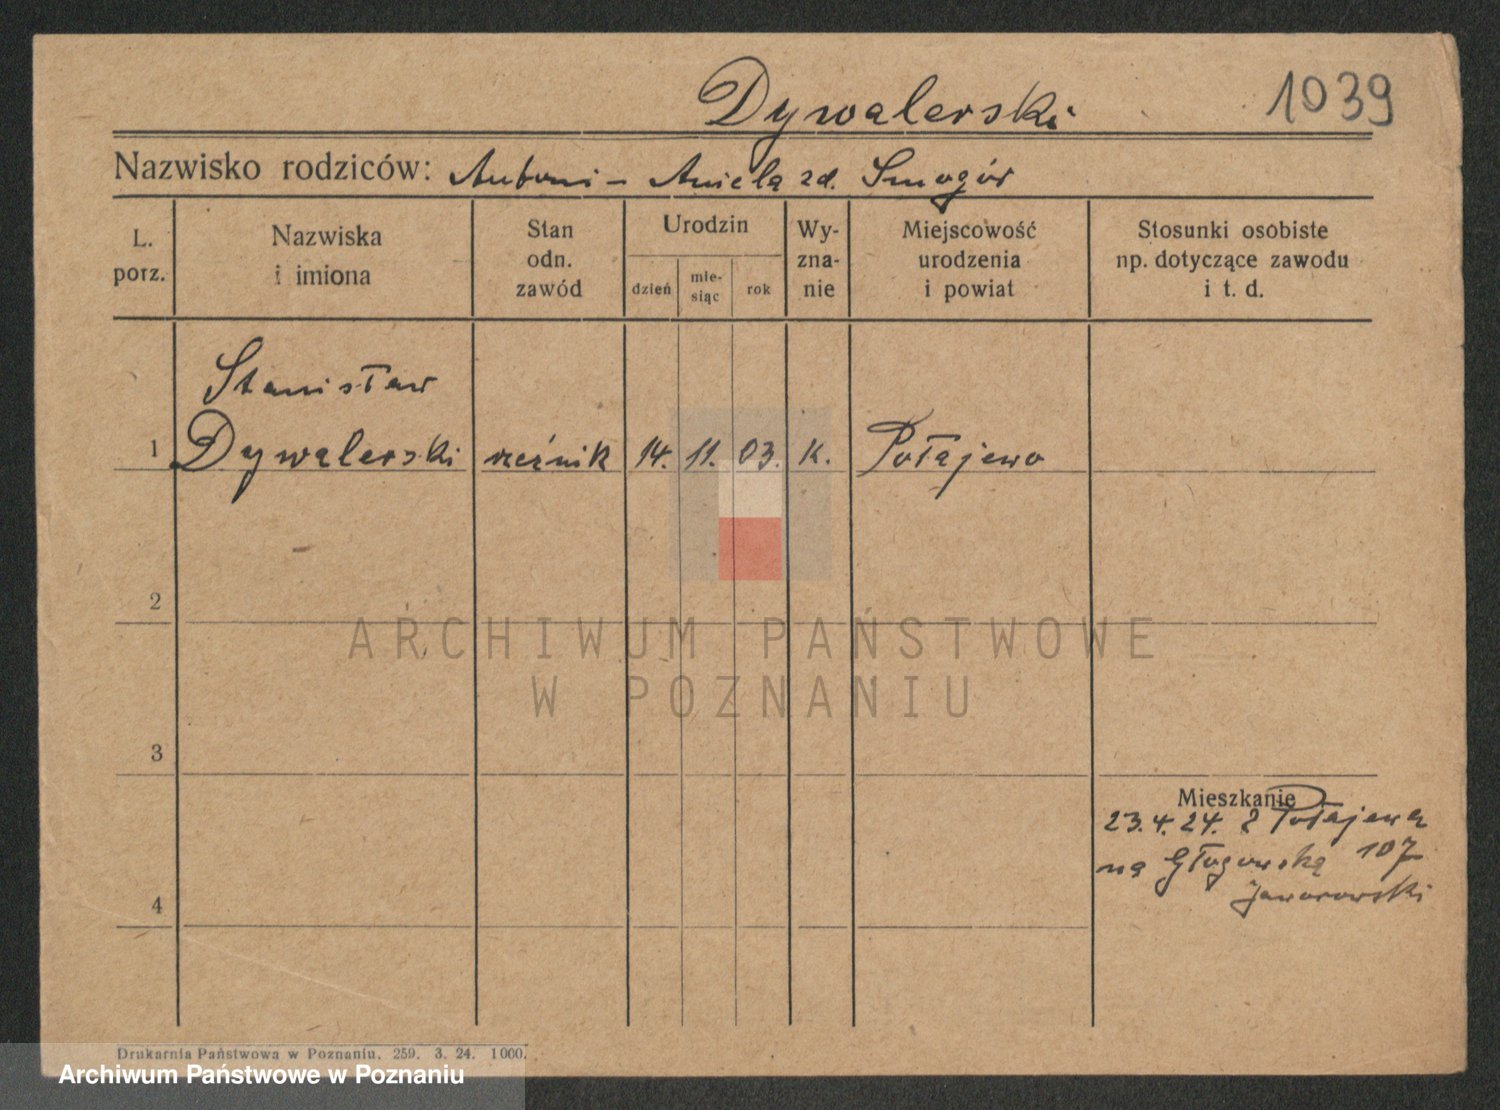 Dywalerski
1039
Nazwisko rodziców: Antoni – Aniela zd. Smogór
L. porz.
Nazwiska i imiona
Stan odn. zawód
Urodzin
dzień
mie-siąc
rok
Wy-zna-nie
Miejscowość urodzenia i powiat
Stosunki osobiste np. dotyczące zawodu i t. d.
Stanisław
1 Dywalerski rzeźnik 14. 11. 03. k. Połajewo
2
ARCHIWUM PAŃSTWOWE
W POZNANIU
3
Mieszkanie
23.4.24. z Połajewa
na Głogowską 107
Jaworowski
4
Drukarnia Państwowa w Poznaniu. 259. 3. 24. 1000.
Archiwum Państwowe w Poznaniu